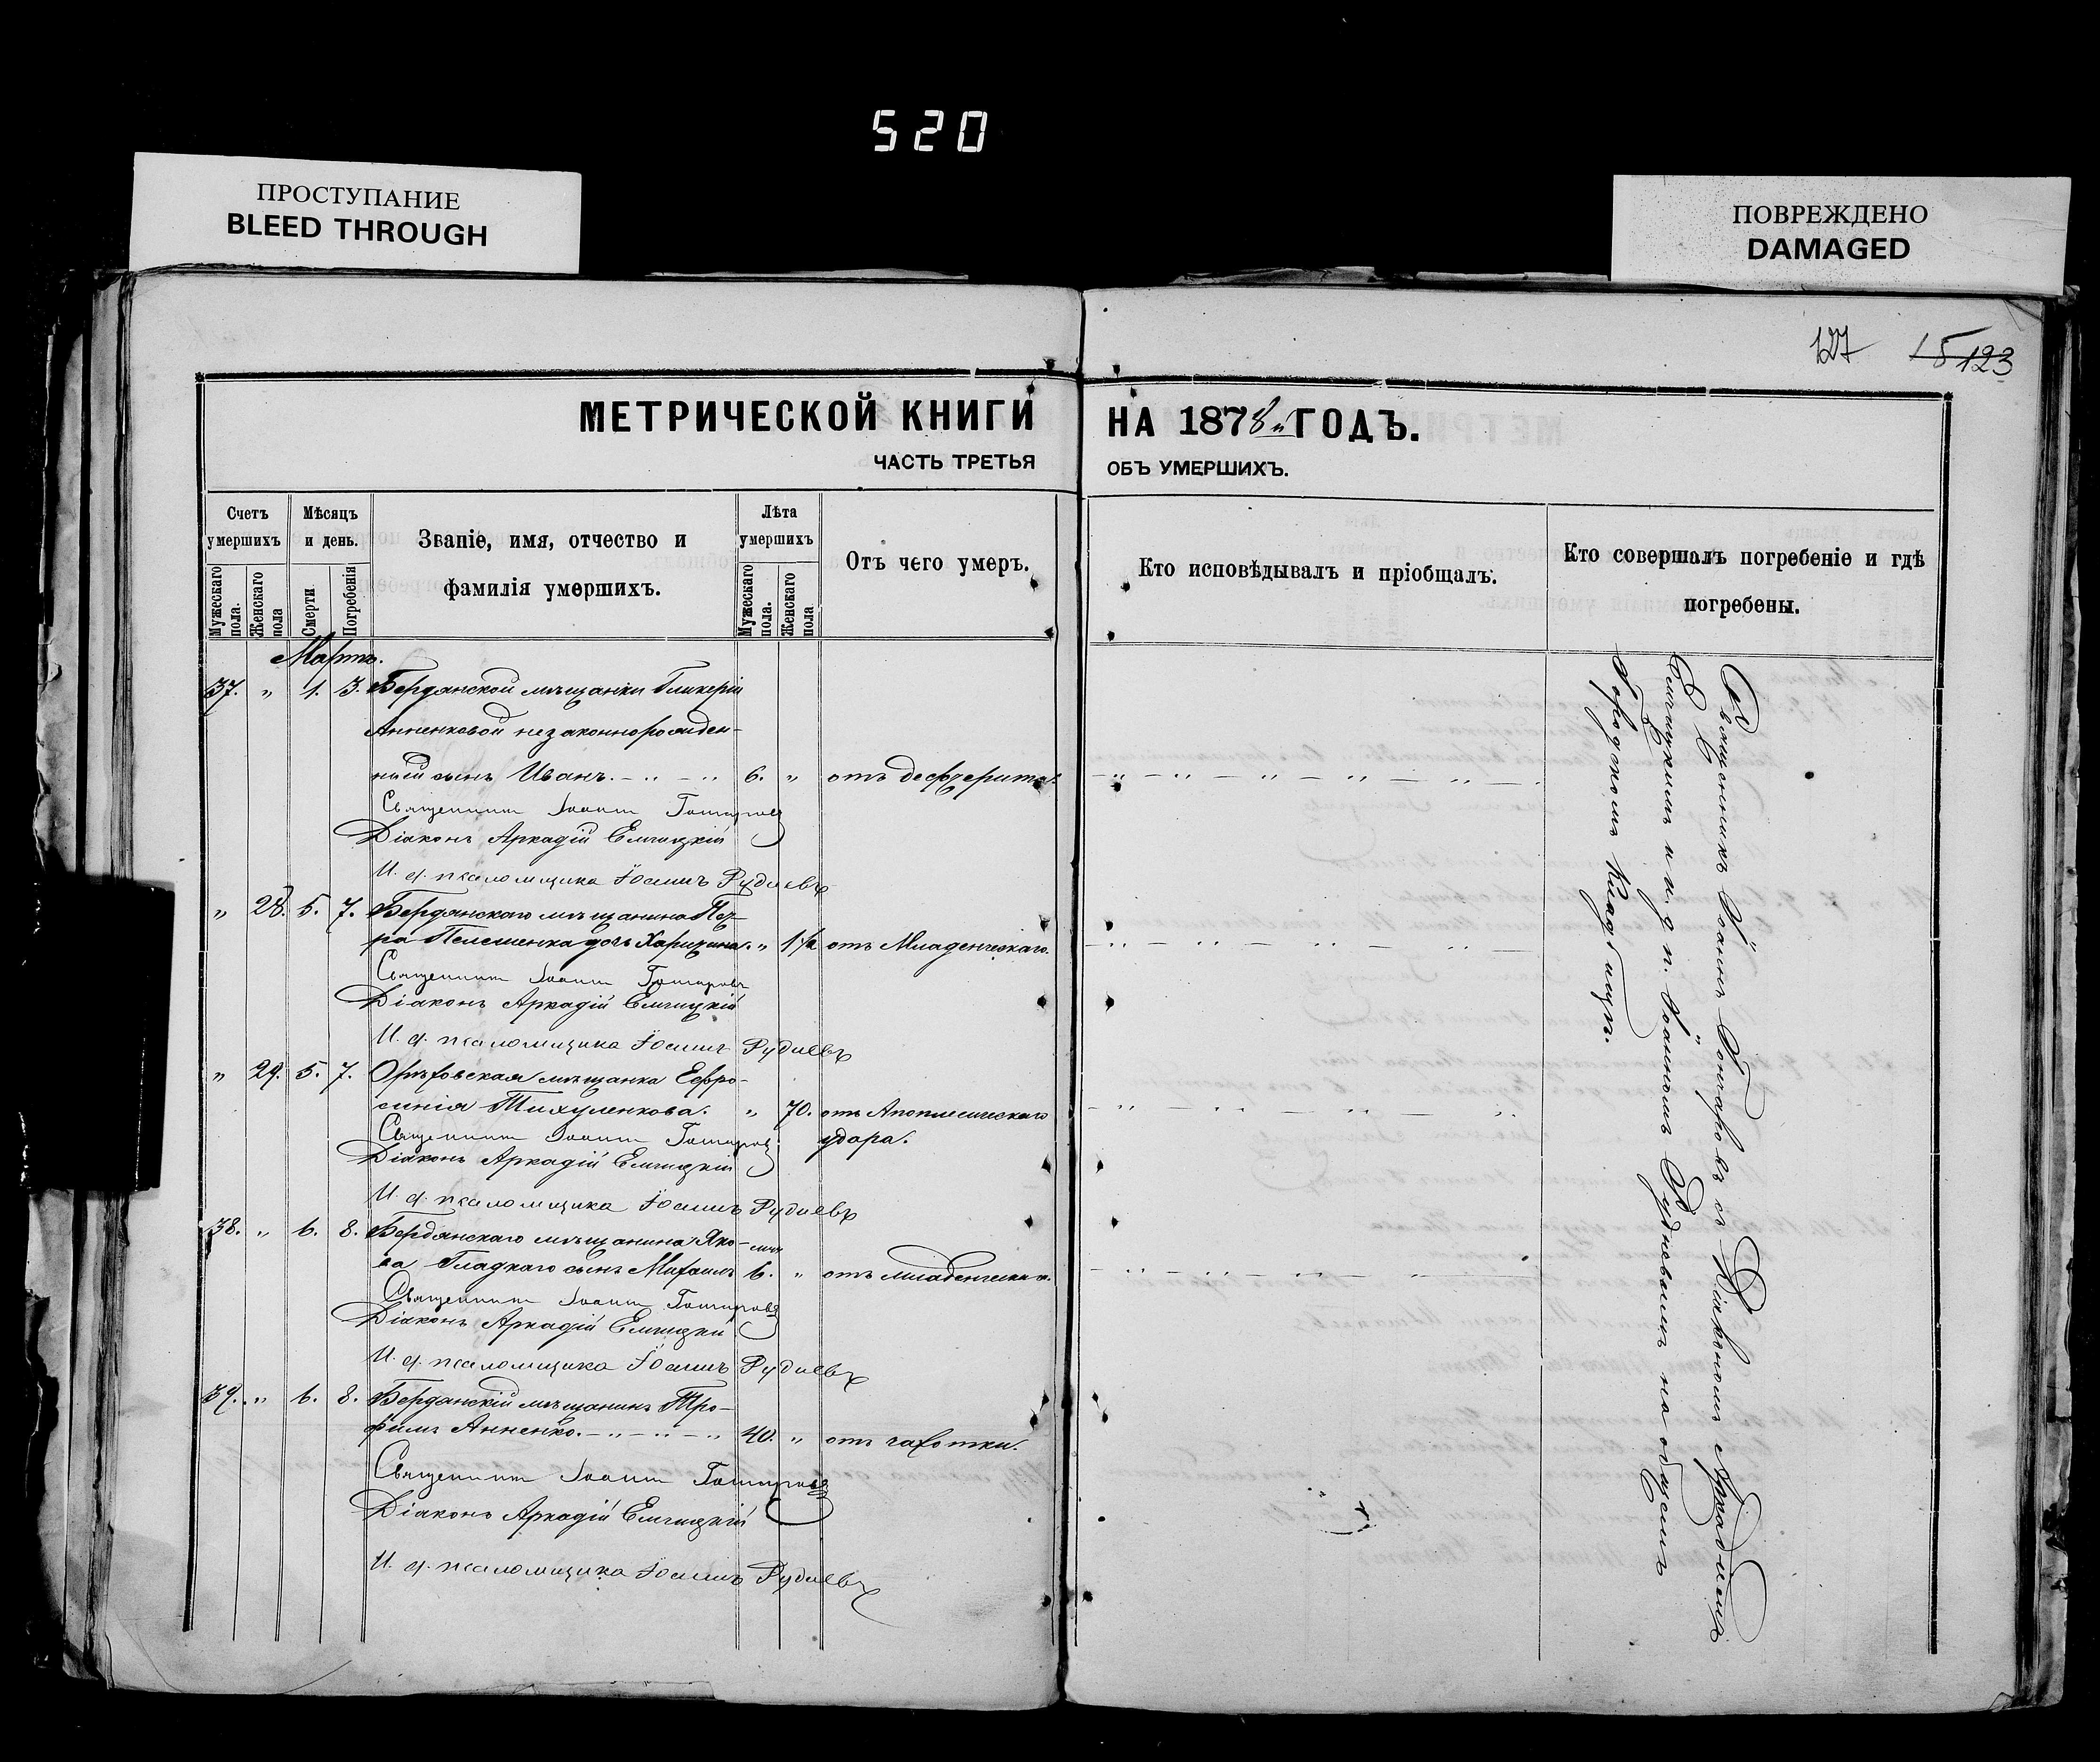 520
ПРОСТУПАНИЕ
BLEED THROUGH
ПОВРЕЖДЕНО
DAMAGED
127 15 123
МЕТРИЧЕСКОЙ КНИГИ
ЧАСТЬ ТРЕТЬЯ
НА 1878й ГОДЪ.
ОБЪ УМЕРШИХЪ.
Счетъ умершихъ
Мужескаго пола.
Женскаго пола
Мѣсяцъ и день.
Смерти
Погребенія
Званіе, имя, отчество и
фамилія умершихъ.
Лѣта умершихъ
Мужескаго пола.
Женскаго пола
Отъ чего умеръ.
Кто исповѣдывалъ и пріобщалъ.
Кто совершалъ погребеніе и гдѣ
погребены.
Мартъ.
37. „ 1. 3. Бердянской мѣщанки Гликеріи
Анненковой незаконнорожден-
ный сынъ Иванъ. 6. „ отъ дефтерита.
Священникъ Іоаннъ Гончаровъ
Діаконъ Аркадій Емчицкій
И. д. псаломщика Іоаннъ Рудневъ
„ 28. 5. 7. Бердянскаго мѣщанина Пет-
ра Пелешенка дочь Харитина. „ 1½ отъ Младенческаго.
Священникъ Іоаннъ Гончаровъ
Діаконъ Аркадій Емчицкій
И. д. псаломщика Іоаннъ Рудневъ
„ 29. 5. 7. Орѣховская мѣщанка Евфро-
синія Тихуленкова. „ 70. отъ Апоплексическаго
удара.
Священникъ Іоаннъ Гончаровъ
Діаконъ Аркадій Емчицкій
И. д. псаломщика Іоаннъ Рудневъ
38. „ 6. 8. Бердянскаго мѣщанина Яко-
ва Гладкаго сынъ Михаилъ 6. мѣ „ отъ младенческаго.
Священникъ Іоаннъ Гончаровъ
Діаконъ Аркадій Емчицкій
И. д. псаломщика Іоаннъ Рудневъ
39. „ 6. 8. Бердянскій мѣщанинъ Тро-
фимъ Анненко. 40. „ отъ чахотки.
Священникъ Іоаннъ Гончаровъ
Діаконъ Аркадій Емчицкій
И. д. псаломщика Іоаннъ Рудневъ
Священникъ Іоаннъ Гончаровъ съ Діакономъ Аркадіемъ
Емчицкимъ и и. д. п. Іоанномъ Рудневымъ на общемъ
городскомъ кладбищѣ.